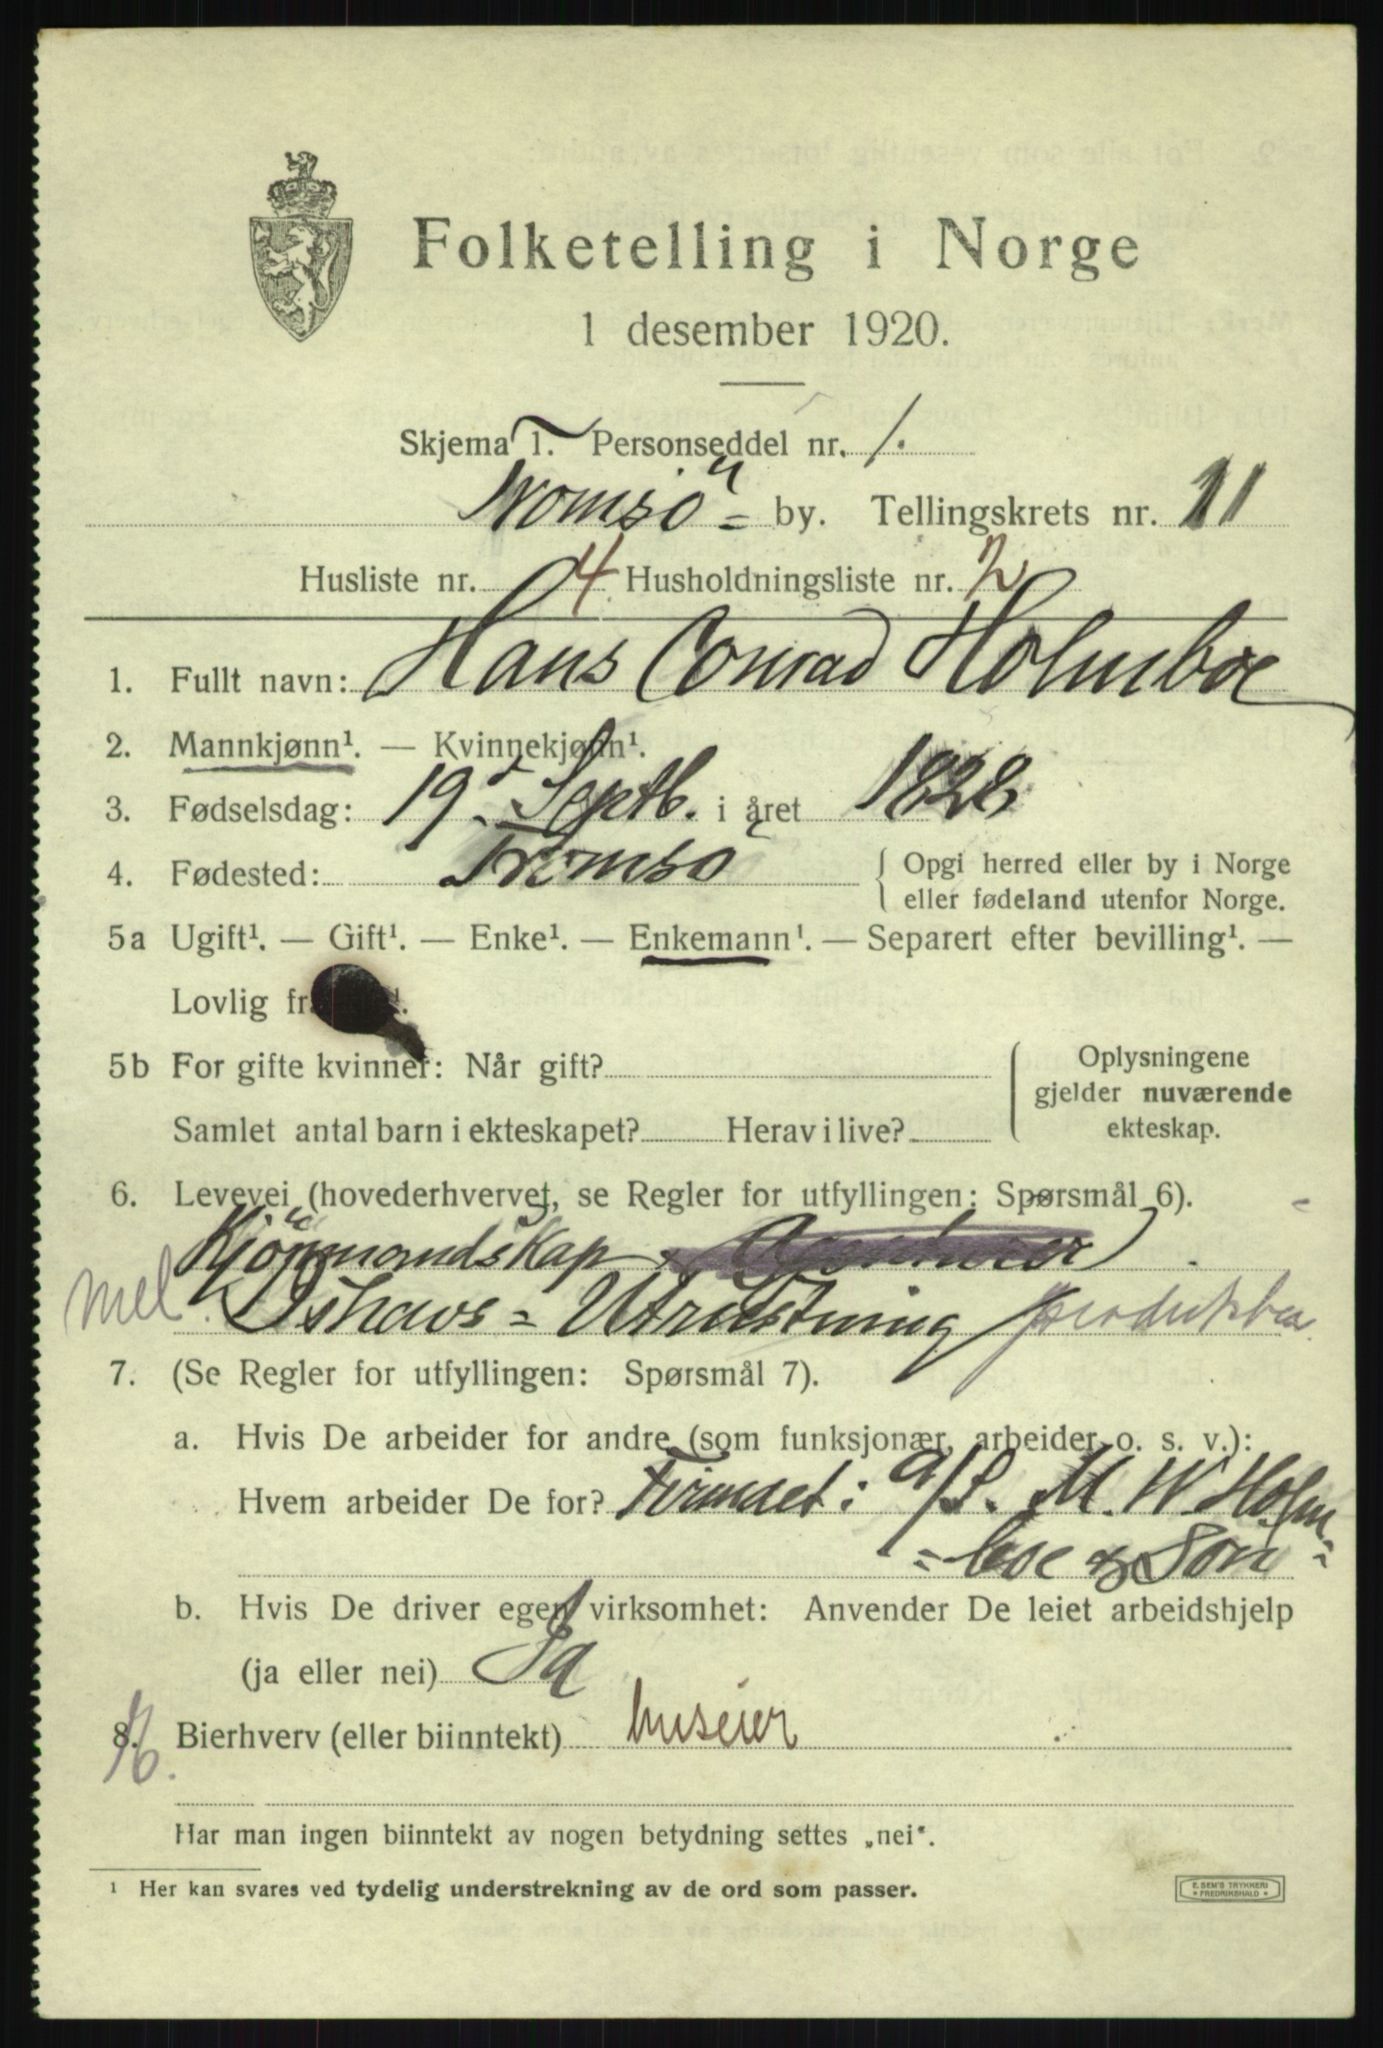 Folketelling i Norge
1 desember 1920.
Skjema 1. Personseddel nr. 1.
Tromsö = by. Tellingskrets nr. 11
Husliste nr. 4 Husholdningsliste nr. 2
1. Fullt navn: Hans Conrad Holmboe
2. Mannkjønn¹. — Kvinnekjønn¹.
3. Fødselsdag: 19. Septb. i året 1828
4. Fødested: Tromsö
{ Opgi herred eller by i Norge
eller fødeland utenfor Norge.
5a Ugift¹. — Gift¹. — Enke¹. — Enkemann¹. — Separert efter bevilling¹. —
Lovlig
5b For gifte kvinner: Når gift?
Samlet antal barn i ekteskapet? Herav i live?
{ Oplysningene
gjelder nuværende
ekteskap.
6. Levevei (hovederhvervet, se Regler for utfyllingen: Spørsmål 6).
Kjömandskap
mel Ishavs = Utrustning
7. (Se Regler for utfyllingen: Spørsmål 7).
a. Hvis De arbeider for andre (som funksjonær, arbeider o. s. v.):
Hvem arbeider De for? Firmaet: a/S. M. W. Holm=
=boe & Sön
b. Hvis De driver egen virksomhet: Anvender De leiet arbeidshjelp
(ja eller nei) Ja
8. Bierhverv (eller biinntekt) huseier
Har man ingen biinntekt av nogen betydning settes „nei“.
¹ Her kan svares ved tydelig understrekning av de ord som passer.
E. SEM'S TRYKKERI
* FREDRIKSHALD *